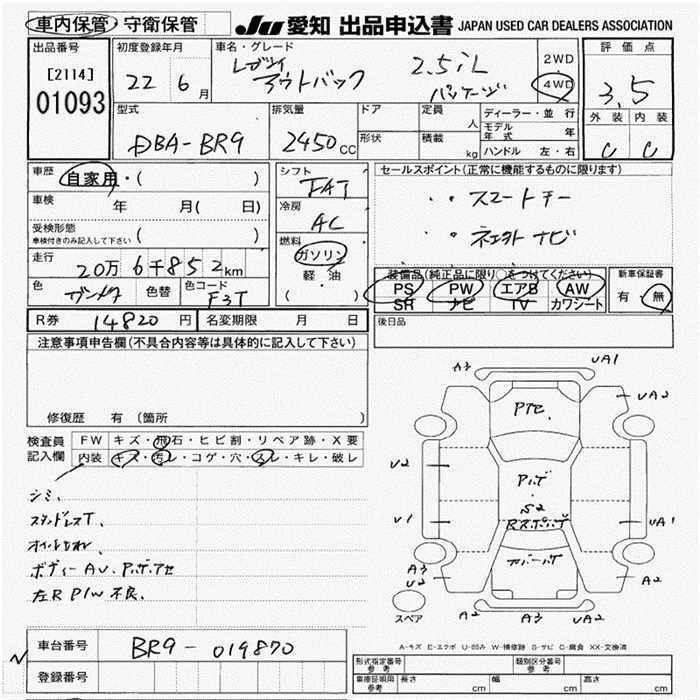 車内保管・守衛保管
JU 愛知 出品申込書 JAPAN USED CAR DEALERS ASSOCIATION
出品番号
[2114]
01093
初度登録年月
22 6月
車名・グレード
レガシィ
アウトバック 2.5iL
パッケージ
2WD
4WD
評価点
3.5
外装 内装
C C
型式
DBA-BR9
排気量
2450CC
ドア
形状
定員 人
積載 kg
ディーラー・並行
モデル年式 年
ハンドル 左・右
車歴 自家用・( )
車検 年 月( 日)
受検形態
車検付きのみ記入して下さい ( )
走行 20万6千852km
色 ガンメタ 色替 色コード F3T
シフト
FAT
冷房
AC
燃料
ガソリン
軽・油
( )
セールスポイント(正常に機能するものに限ります)
・・スマートキー
・・ネェット ナビ
装備品(純正品に限り○をつけてください)
PS PW エアB AW
SR ナビ TV カワシート
新車保証書
有・無
R券 14820円 名変期限 月 日
後日品
注意事項申告欄(不具合内容等は具体的に記入して下さい)
修復歴 有〔箇所 〕
検査員
記入欄
FW キズ・飛石・ヒビ割・リペア跡・X要
内装 キズ・汚レ・コゲ・穴・スレ・キレ・破レ
シミ、
スタッドレスT、
オイルモレ、
ボディーAU、P.ボ.アセ
左R P/W 不良、
A3 UA1
UA2
Pアセ
U2
P.ボ
・
S2
Rスポ.ボ
U1 UA1
カバーハゲ
A3
U2
A2
A2 A3 UA2
スペア
A-キズ E-エクボ U-凹み W-補修跡 S-サビ C-腐食 XX-交換済
車台番号 BR9-019870
登録番号
形式指定番号 参考
類別区分番号 参考
車庫証明用 参考 長さ cm 幅 cm 高さ cm